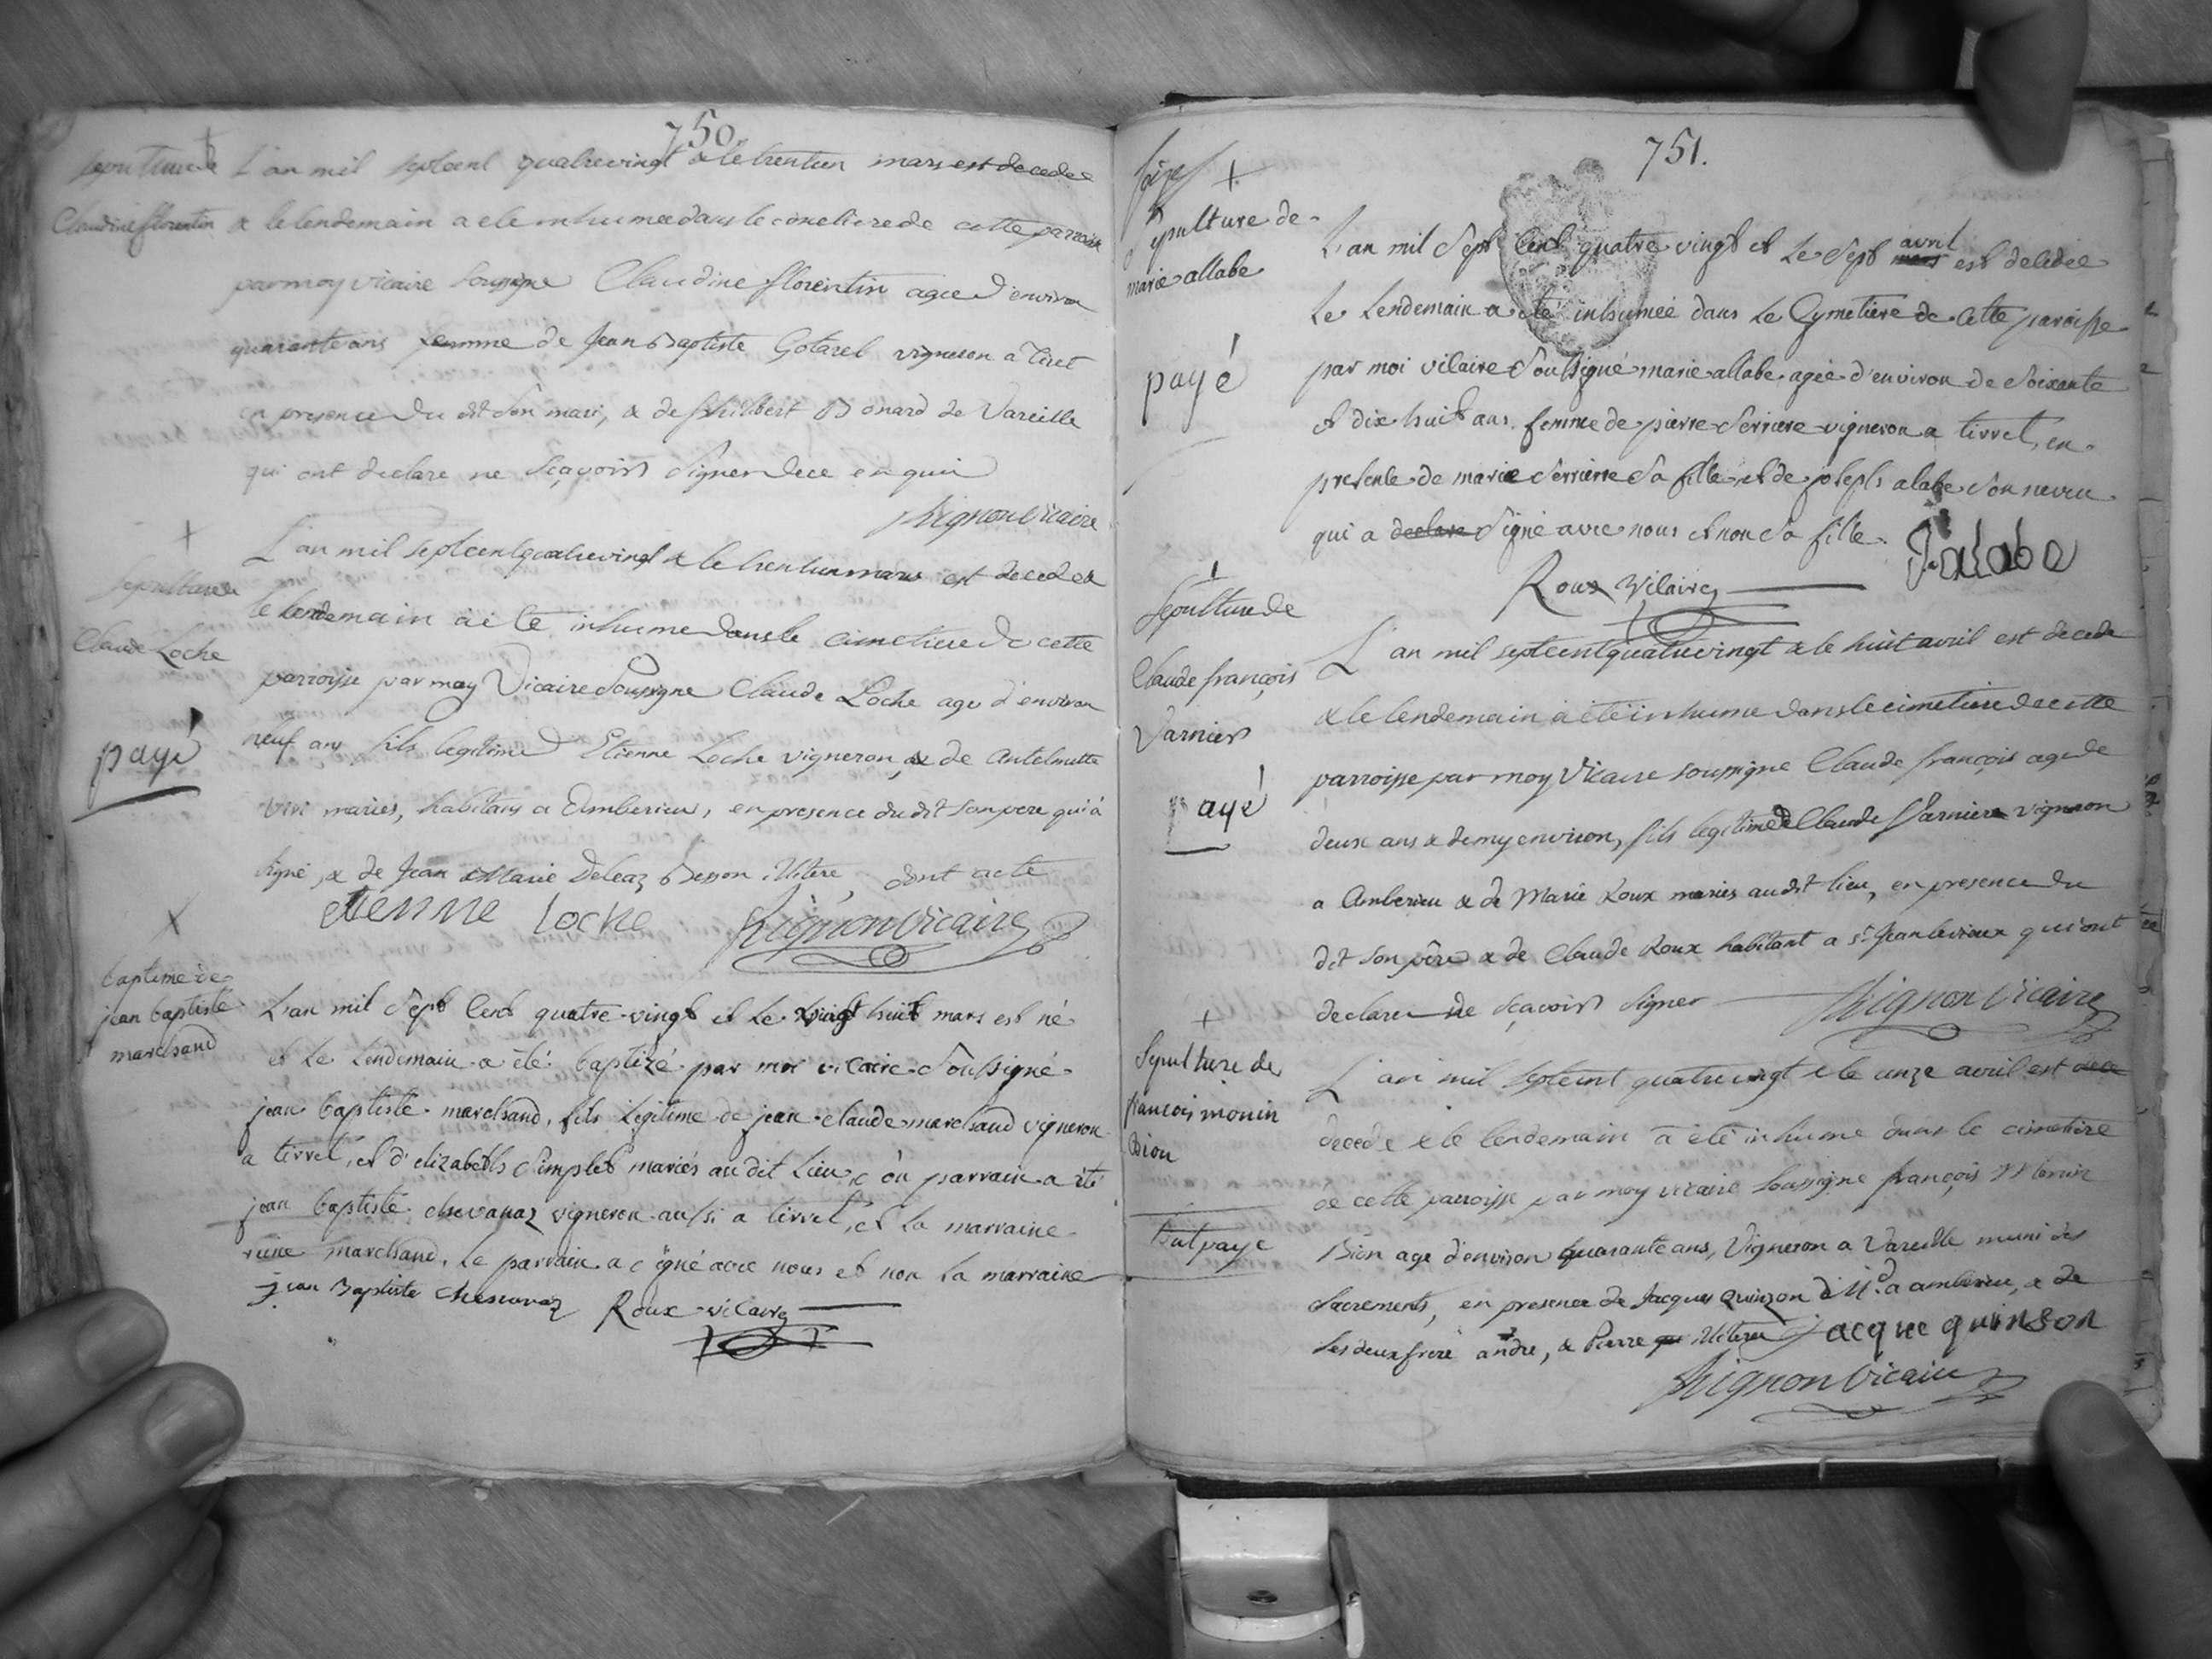 750.
sepulture de
Claudine florentin
L'an mil septcent quatrevingt & le trentein mars est decedee
& le lendemain a ete inhumee dans le cimetiere de cette parroisse
par moy vicaire soussigne Claudine florentin agee d'environ
quarante ans femme de Jean Baptiste Gotarel vigneron a Tiret
en presence du dit son mari, & de philibert Bonard de Vareille
qui ont declare ne sçavoir signer de ce enquis
Vicaire
sepulture de
Claude Loche
payé
L'an mil septcent quatrevingt & le trentun mars est decede &
le lendemain a ete inhume dans le cimetiere de cette
parroisse par moy Vicaire soussigne Claude Loche age d'environ
neuf ans fils legitime d'Etienne Loche vigneron, & de Antelmette
Vivi maries, habitans a Amberieu, en presence du dit son pere qui a
signe, & de Jean Marie Deleaz Besson illitere, dont acte
etienne loche
Vicaire
bapteme de
jean baptiste
marchand
L'an mil sept cent quatre vingt et le vingt huit mars est né
et le lendemain a été baptizé par moi vicaire soussigné
jean baptiste marchand, fils legitime de jean claude marchand vigneron
a tirret, et d'elizabeth simplet mariés au dit lieu,
parrain a été
jean baptiste chevanaz vigneron aussi a tirret, et la marraine
reine marchand. le parrain a cigné avec nous et non la marraine
jean Baptiste
Roux vicaire
751.
Sepulture de
marie allabe
payé
L'an mil sept cent quatre vingt et le sept mars avril est decedee
le lendemain a eté inhumée dans le Cymetiere de cette paroisse
par moi vicaire soussigné marie allabe agée d'environ de soixante
et dix huit ans femme de pierre serriere vigneron a tirret, en
presence de marie serriere sa fille et de joseph alabe son neveu
qui a declare signé avec nous et non sa fille.
J alabe
Roux vicaire
Sepulture de
Claude françois
Varnier
payé
L'an mil septcent quatrevingt & le huit avril est decede
& le lendemain a été inhume dans le cimetiere de cette
parroisse par moy Vicaire soussigne Claude françois age de
deux ans & demy environ, fils legitime de Claude Varniere vigneron
a Amberieu & de Marie Roux maries au dit lieu, en presence du
dit son père & de Claude Roux habitant a st Jean le vieux qui ont
declare ne sçavoir signer
Vicaire
Sepulture de
francois monin
Bion
tout payé
L'an mil septcent quatrevingt & le unze avril est dece
decede & le lendemain a été inhume dans le cimetiere
de cette parroisse par moy vicaire soussigne françois Monin
Bion age d'environ quarante ans, Vigneron a Vareille muni des
sacrements, en presence de Jacques Quinzon Md a amberieu, & de
ses deux frere andre, & Pierre illiteres
jacque quinson
Vicaire